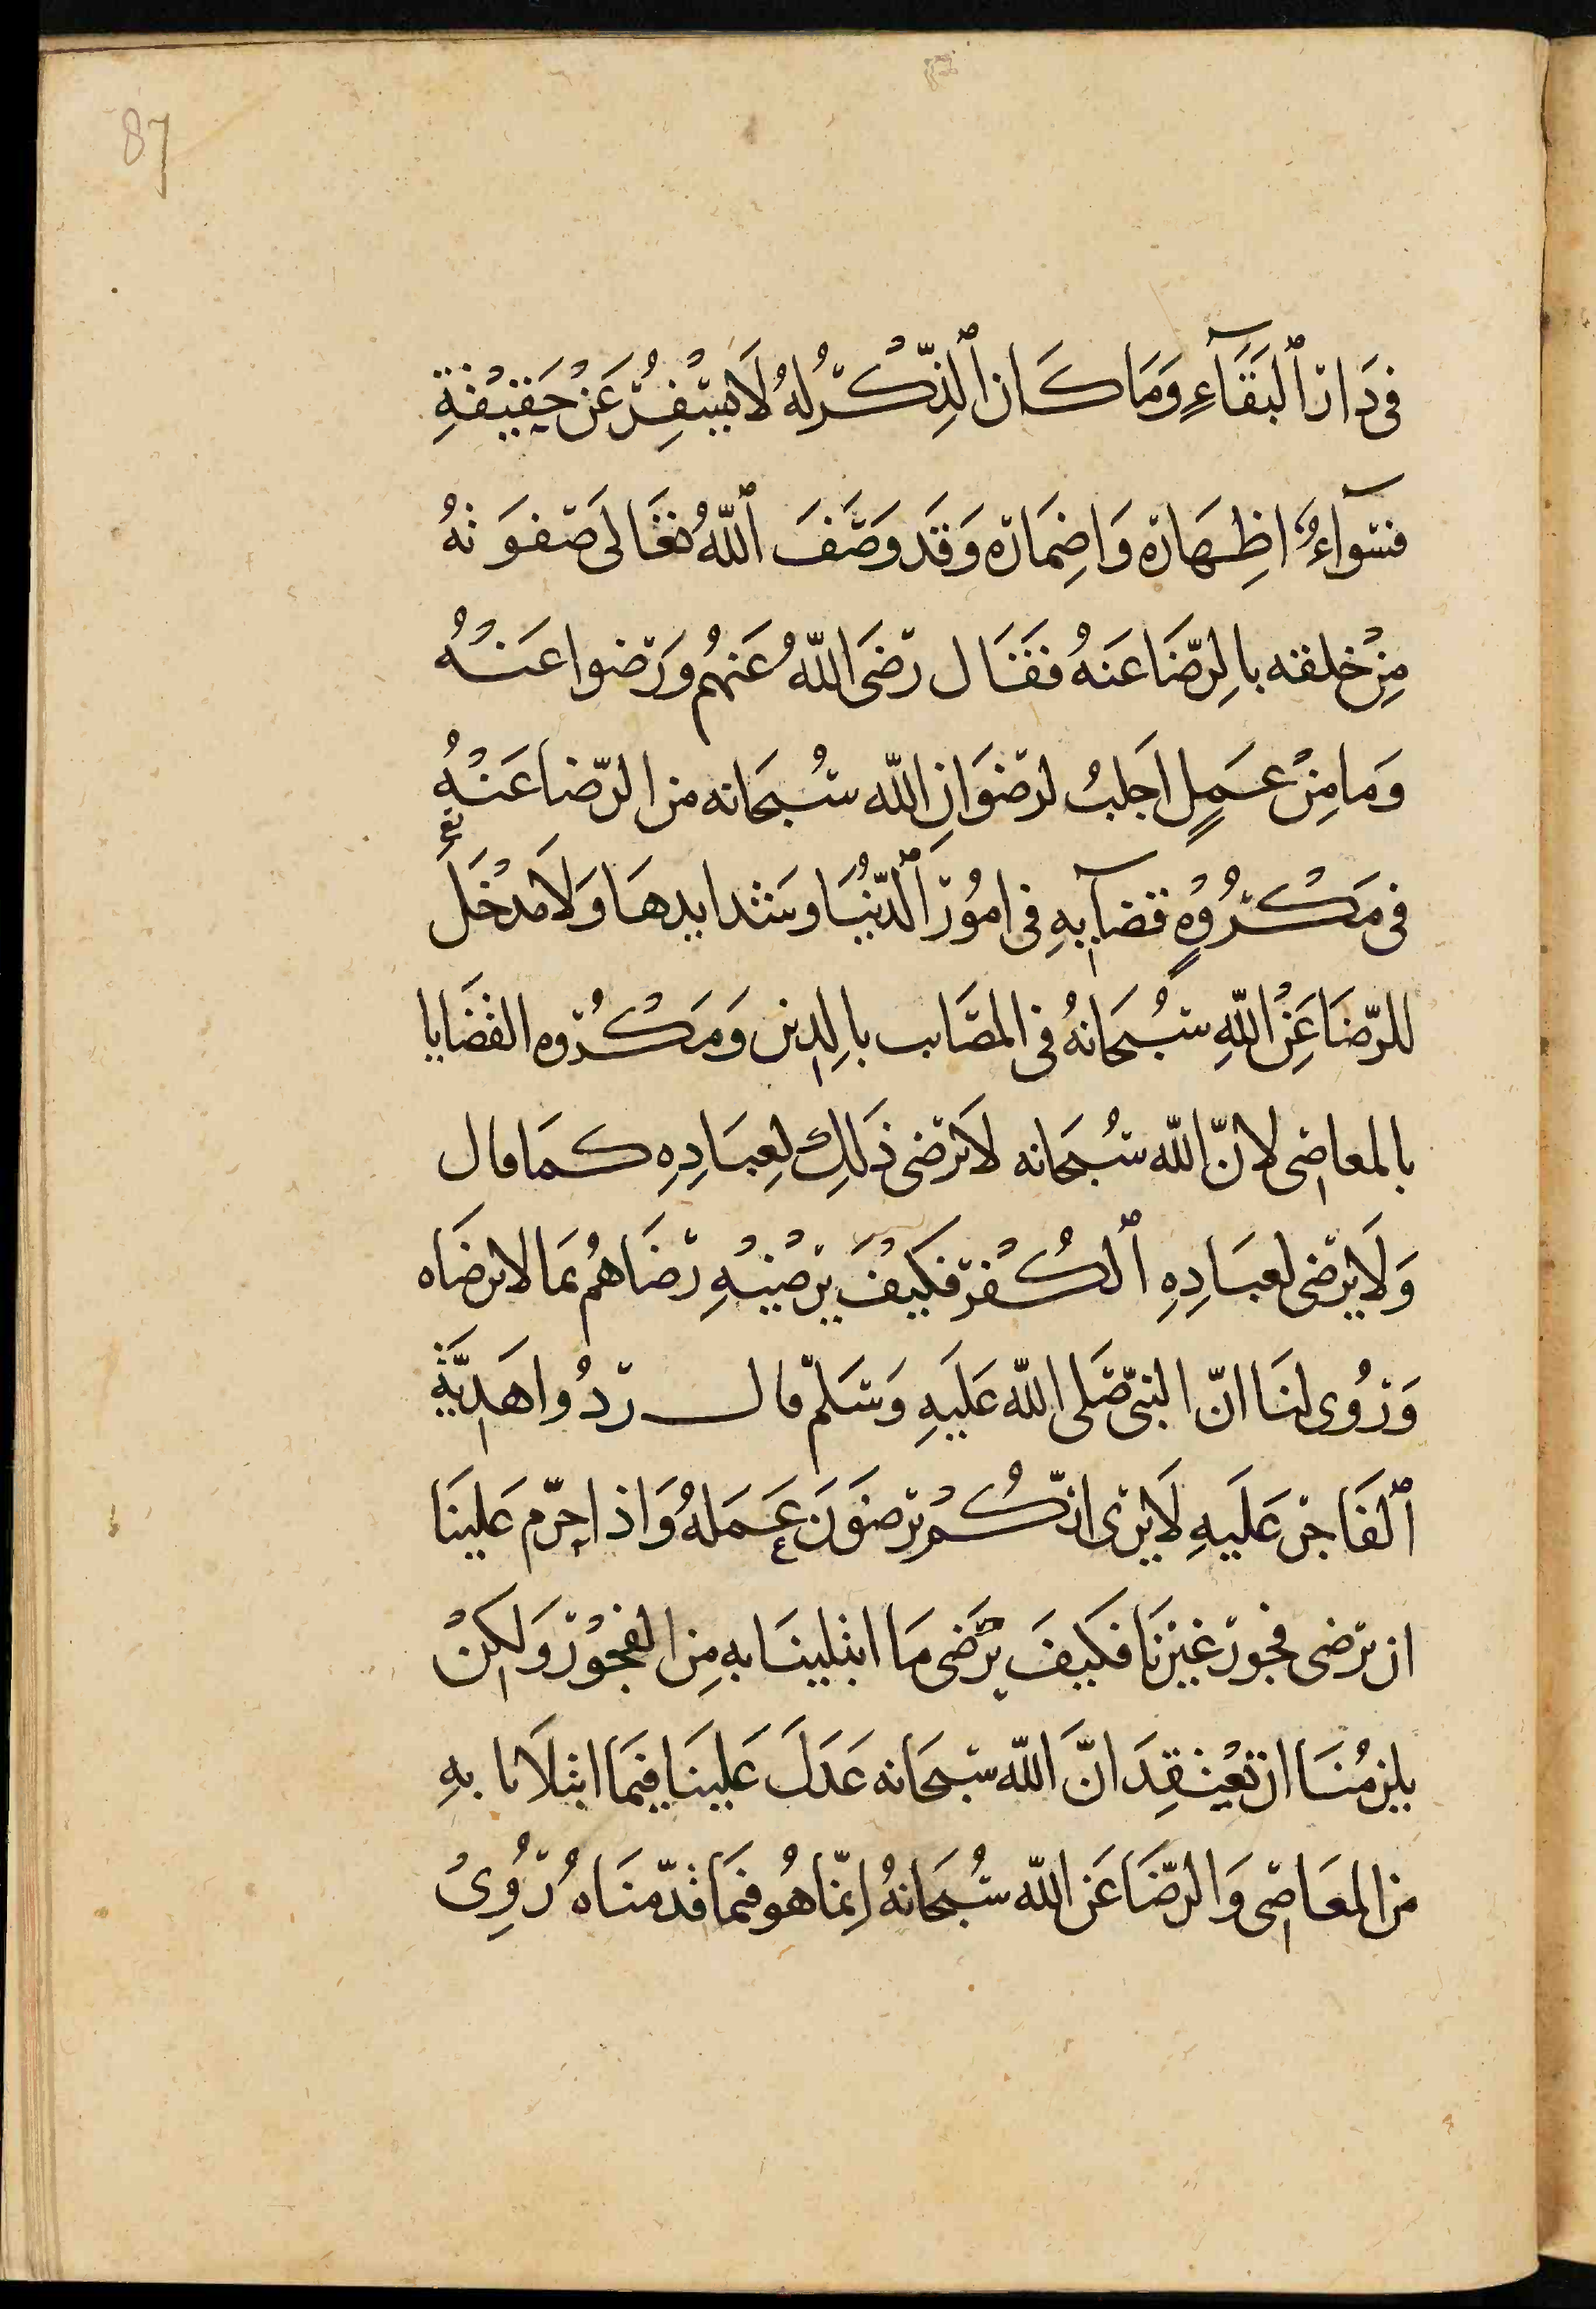 87
فى دَار ٱلبَقَآءِ وَمَا كَان ٱلذِّكْرُ لهُ لَا يسْفِرُ عَنْ حَقيْقةِ
فسَوآءٌ اظِهَاره وَاضِمَاره وَقَد وَصَفَ ٱللّهُ تعَالى صَفوَتهُ
مِنْ خلقه بالِرّضَا عَنهُ فقَال رضَى اللّهُ عَنهُم وَرَضوا عَنْهُ
وَما مِنْ عَمَلٍ اَجلبُ لرضوَانِ اللّه سُبحَانه من الرّضا عَنْهُ
فى مَكْرُوْهٍ قضآيهِ فى امُوْر ٱلدّنْيَا وشَدايدهَا وَلَا مدْخَلَ
للرّضَا عَنِ اللّهِ سُبْحَانهُ فى المصَايب بالِدِين وَمَكْرُوه القضَايا
بالمعاصِى لانّ اللّه سُبحَانه لَا يَرضى ذَلِكَ لِعِبَادِهِ كمَا قال
وَلَا يَرضى لعبَادِهِ ٱلكُفْرَ فكيفَ يرْضيْهِ رضَاهُم بمَا لا يرضَاه
وَرُوى لنَا انّ النبىّ صَلى اللّه عَليَهِ وَسَلّم قال رُدوا هَدِيَّةَ
ٱلفَاجر عَلَيهِ لَا يرى انّكُمْ ترضَوَنَ عَمَلهُ وَاذا حرّم عَلينَا
ان نرضى فجور غيْرنَا فكيفَ نَرْضى مَا ابتلينَا بهِ مِن الفجُوْر وَلكِنْ
يلزمُنَا ان نعْتقِدَ انَّ اللّه سبحَانه عَدَلَ عَليْنَا فيمَا ابتلَانا بهِ
من المعَاصِى وَالرّضَا عَن اللّه سُبحَانهُ اِنّما هُو فيمَا قدّمنَاهُ رُوِىَ